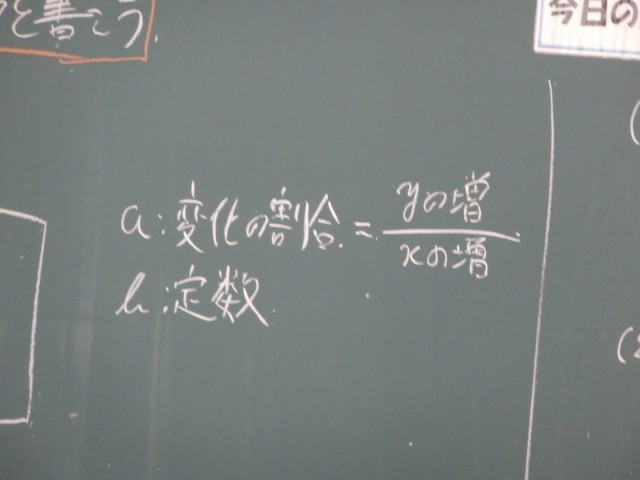 を書こう.
今日の
a:変化の割合.=yの増/xの増
b:定数.
(
(2